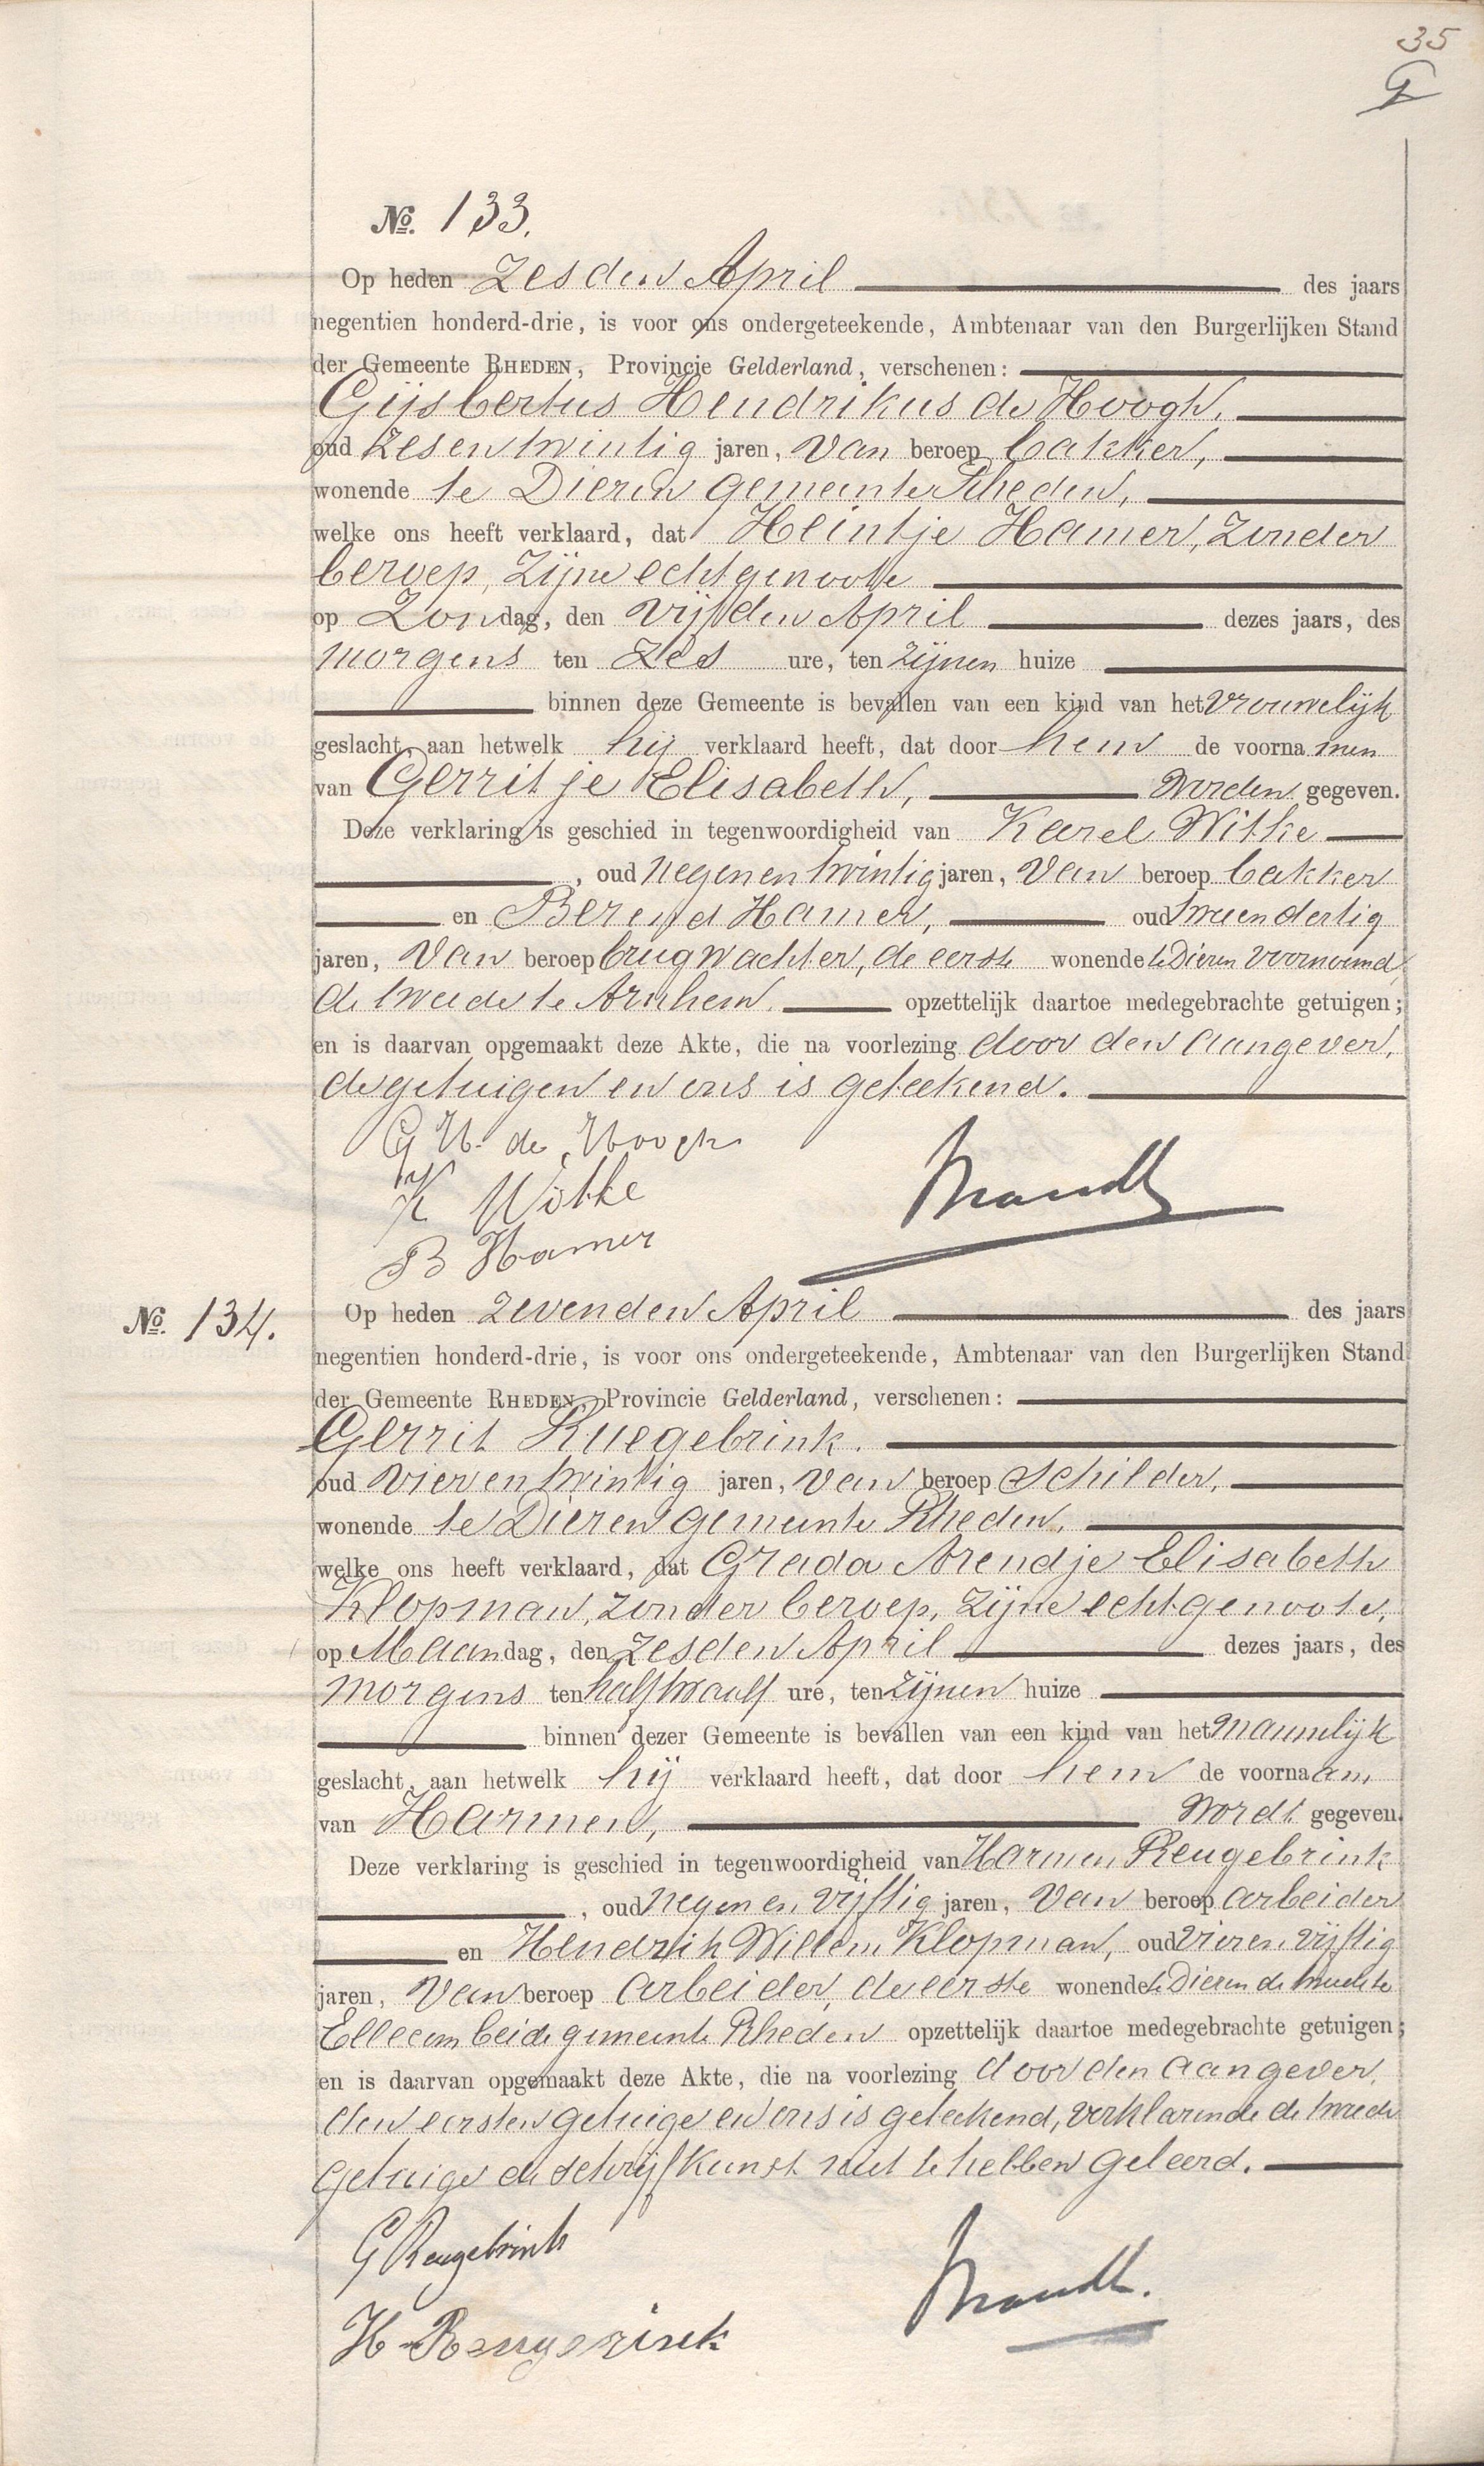 35
G
No. 133.
Op heden zesden April des jaars
negentien honderd-drie, is voor ons ondergeteekende, Ambtenaar van den Burgerlijken Stand
der Gemeente RHEDEN, Provincie Gelderland, verschenen:
Gijsbertus Hendrikus de Hoogh,
oud zesentwintig jaren, van beroep bakker,
wonende te Dieren gemeente Rheden,
welke ons heeft verklaard, dat Heintje Hamer, zonder
beroep, zijne echtgenoote
op Zondag, den vijfden April dezes jaars, des
morgens ten zes ure, ten zijnen huize
binnen deze Gemeente is bevallen van een kind van het vrouwelijk
geslacht, aan hetwelk hij verklaard heeft, dat door hem de voornamen
van Gerritje Elisabeth, worden gegeven.
Deze verklaring is geschied in tegenwoordigheid van Karel Witke
, oud negenentwintig jaren, van beroep bakker
en Berend Hamer, oud tweeendertig
jaren, van beroep brugwachter, de eerste wonende te Dieren voornoemd,
de tweede te Arnhem, opzettelijk daartoe medegebrachte getuigen;
en is daarvan opgemaakt deze Akte, die na voorlezing door den aangever,
de getuigen en ons is geteekend.
G H de Hoogh
K Witke
B Hamer
Brandt
No. 134.
Op heden zevenden April des jaars
negentien honderd-drie, is voor ons ondergeteekende, Ambtenaar van den Burgerlijken Stand
der Gemeente RHEDEN, Provincie Gelderland, verschenen:
Gerrit Ruegebrink.
oud vierentwintig jaren, van beroep schilder,
wonende te Dieren gemeente Rheden,
welke ons heeft verklaard, dat Grada Arendje Elisabeth
Klopman, zonder beroep, zijne echtgenoote,
op Maandag, den zesden April dezes jaars, des
morgens ten half twaalf ure, ten zijnen huize
binnen dezer Gemeente is bevallen van een kind van het mannelijk
geslacht, aan hetwelk hij verklaard heeft, dat door hem de voornaam
van Harmen, wordt gegeven.
Deze verklaring is geschied in tegenwoordigheid van Harmen Reugebrink
, oud negen en vijftig jaren, van beroep arbeider
en Hendrik Willem Klopman, oud vier en vijftig
jaren, van beroep arbeider, de eerste wonende te Dieren de tweede te
Ellecom beide gemeente Rheden opzettelijk daartoe medegebrachte getuigen;
en is daarvan opgemaakt deze Akte, die na voorlezing door den aangever,
den eersten getuige en ons is geteekend, verklarende de tweede
getuige de schrijfkunst niet te hebben geleerd.
G Reugebrink
H Reugerinck
Brandt.